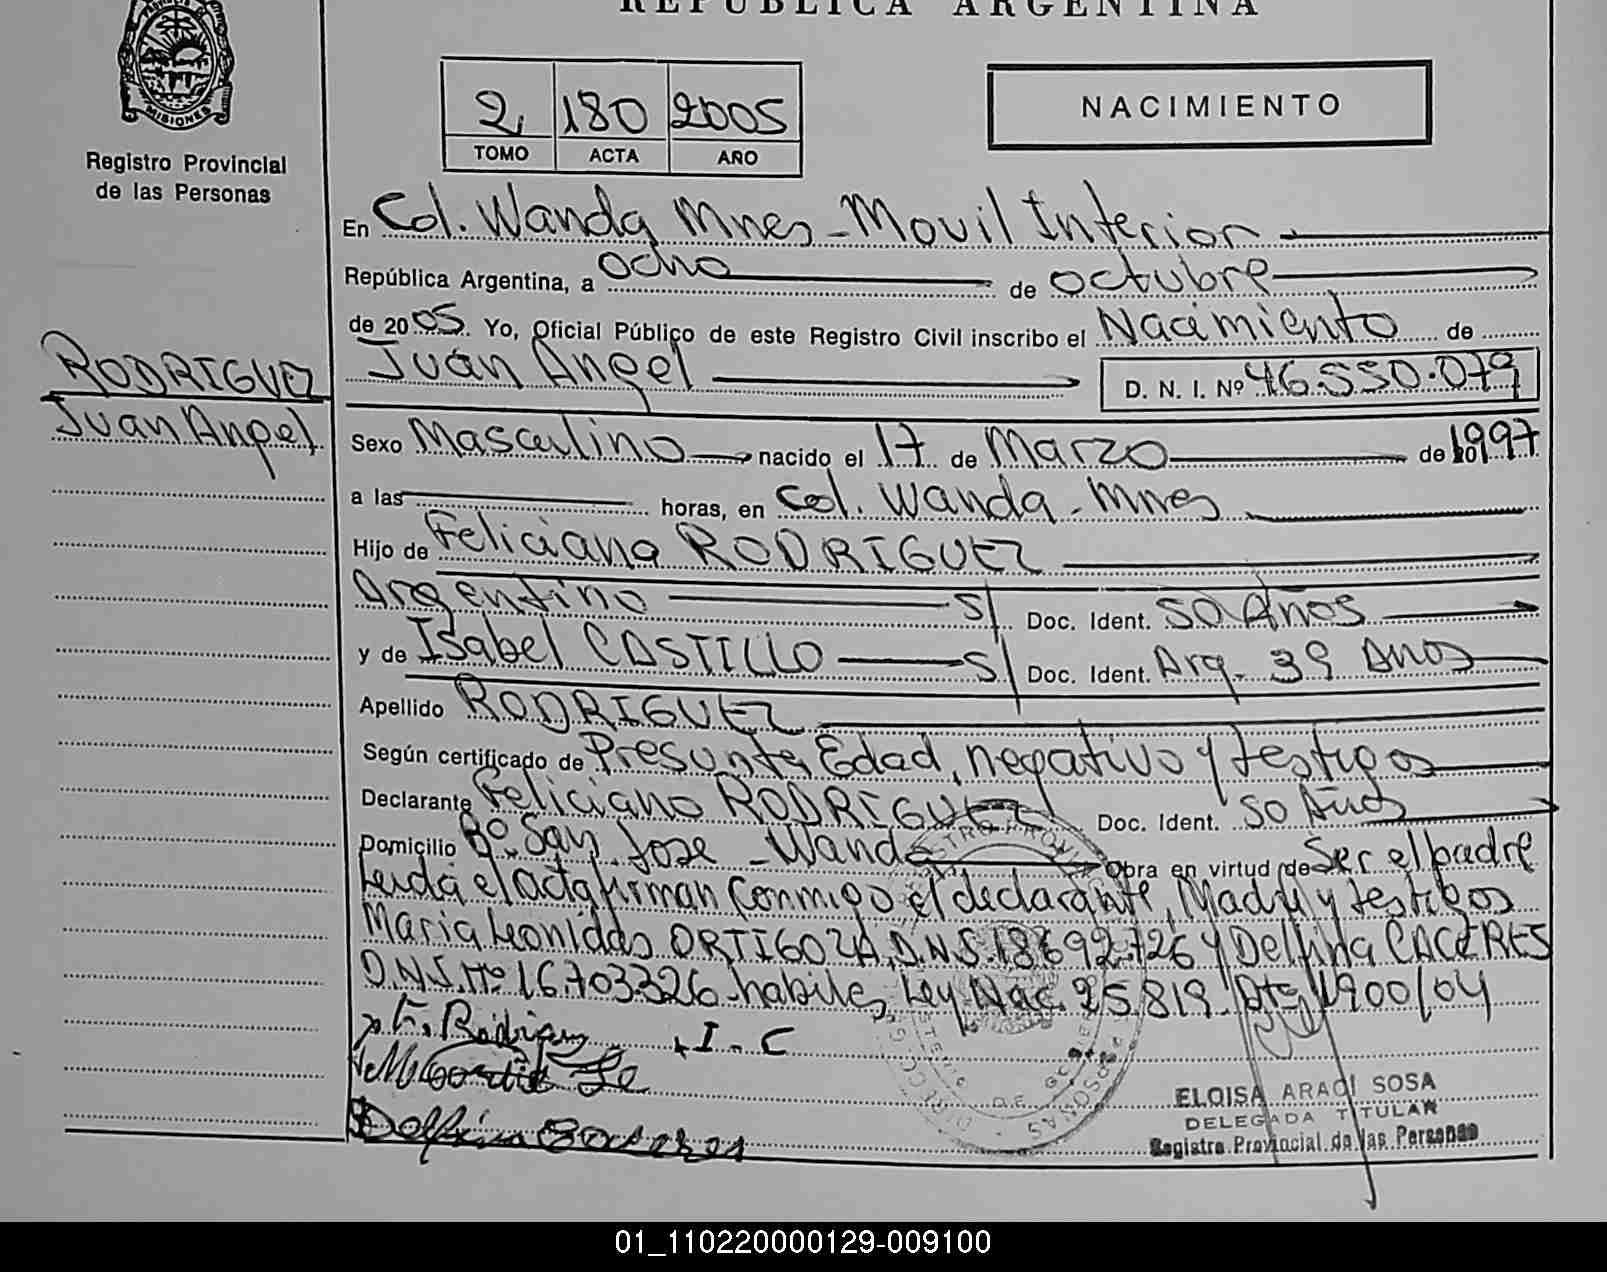 REPUBLICA ARGENTINA
MISIONES
Registro Provincial
de las Personas
2 180 2005
TOMO ACTA AÑO
NACIMIENTO
En Col. Wanda Mnes - Movil Interior
República Argentina, a ocho de octubre
de 2005. Yo, Oficial Público de este Registro Civil inscribo el Nacimiento de
Juan Angel D. N. I. Nº 46.550.079
RODRIGUEZ
Juan Angel
Sexo Masculino nacido el 17 de Marzo de 1997
a las horas, en Col. Wanda - Mnes
Hijo de Feliciano RODRIGUEZ
Argentino S/ Doc. Ident. 50 Años
y de Isabel CASTILLO S/ Doc. Ident. Arg. 39 Anos
Apellido RODRIGUEZ
Según certificado de Presunta Edad, negativo y testigos
Declarante Feliciano RODRIGUEZ Doc. Ident. 50 Años
Domicilio Bº San Jose - Wanda Obra en virtud de Ser el padre
Leida el acta firman conmigo el declarante, Madre y testigos
Maria Leonidas ORTIGOZA, D.N.I. 18.692.726 y Delfina CACERES
D.N.I. Nº 16.703.326 - habiles, Ley Nac. 25.819. Dto. 1900/04
F. Rodriguez I - C
Delfina
ELOISA ARACI SOSA
DELEGADA TITULAR
Registro Provincial de las Personas
01_110220000129-009100